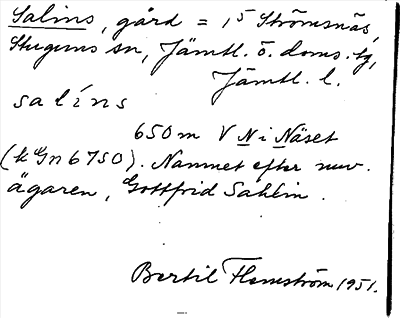 Salins, gård = 1⁵ Strömsnäs,
Stuguns sn, Jämtl. ö. doms. tg,
Jämtl. l.
salíns
650 m V N i Näset
(k Gn 6750). Namnet efter nuv.
ägaren, Gottfrid Sahlin.
Bertil Flemström 1951.